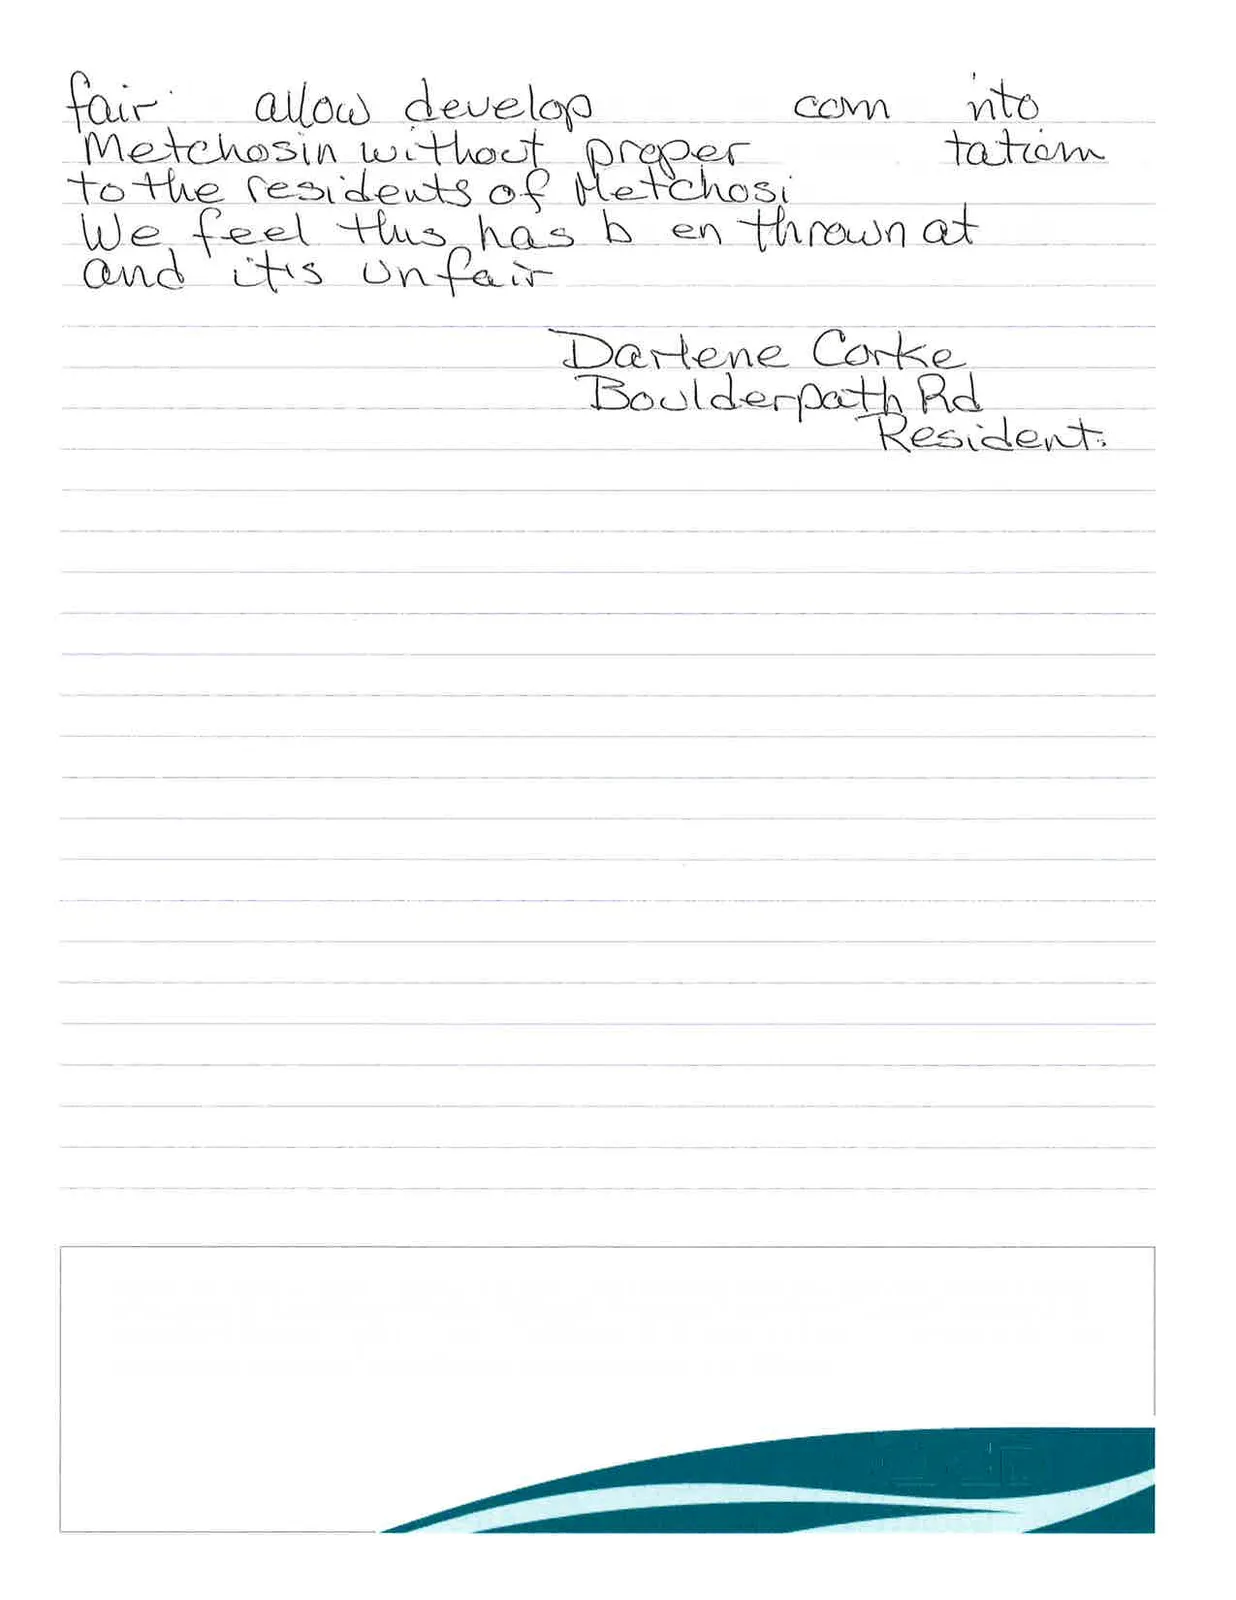 fair allow develop com nto
Metchosin without proper tation
to the residents of Metchosi
We feel this has b en thrown at
and it's unfair
Darlene Corke
Boulderpath Rd
Resident.